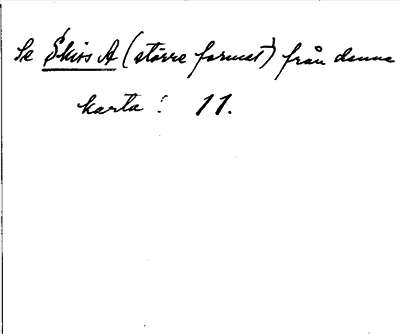 Se Skiss A (större format) från denna
karta : 11.